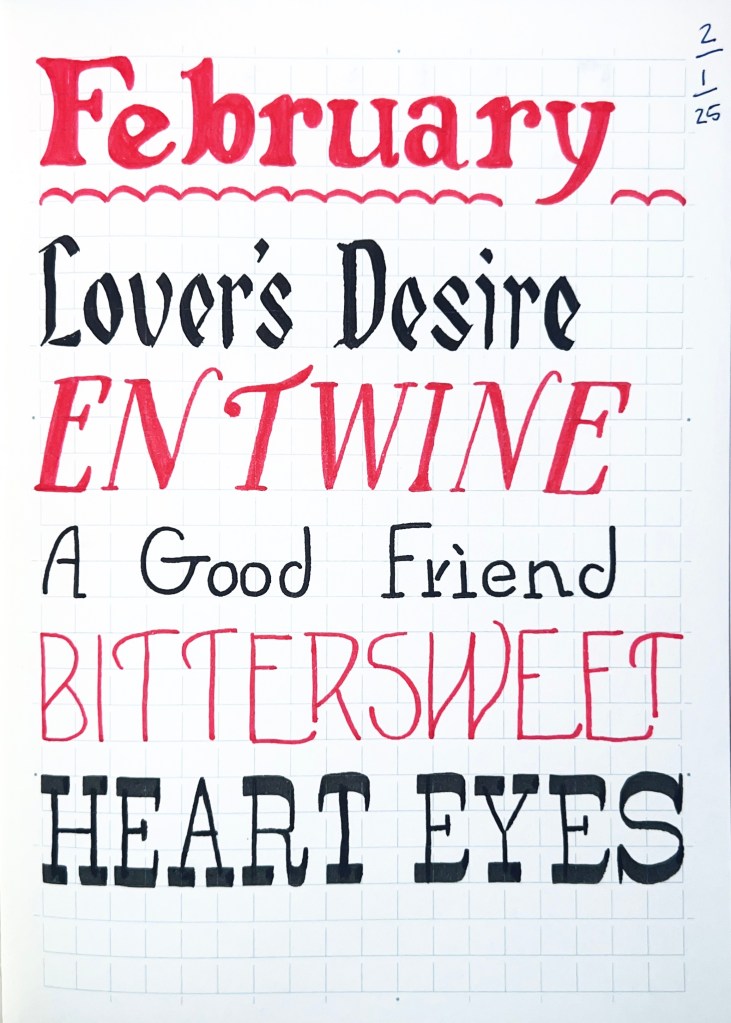 2
1
25
February
Lover's Desire
ENTWINE
A Good Friend
BITTERSWEET
HEART EYES